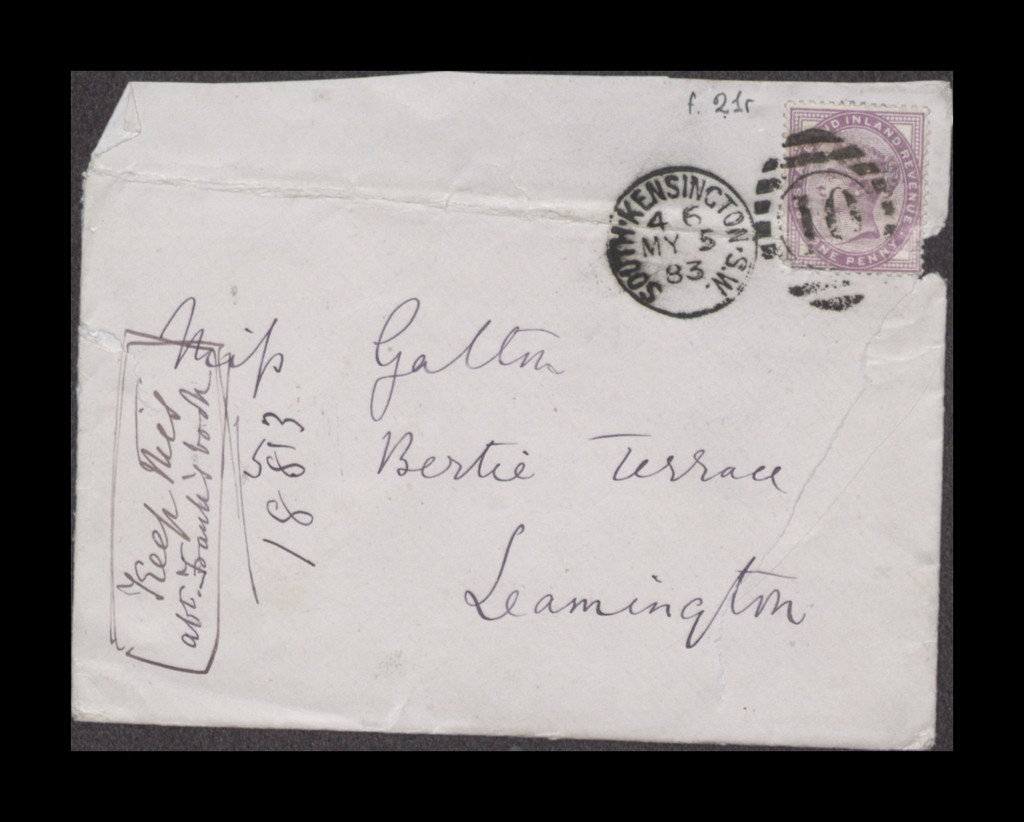 f. 21r
SOUTH·KENSINGTON·S.W.
4 6
MY 5
83
D INLAND REVENUE
NE PENNY
10
Miss Galton
Bertie Terrace
Leamington
Keep this
abt. Frank's book
1883